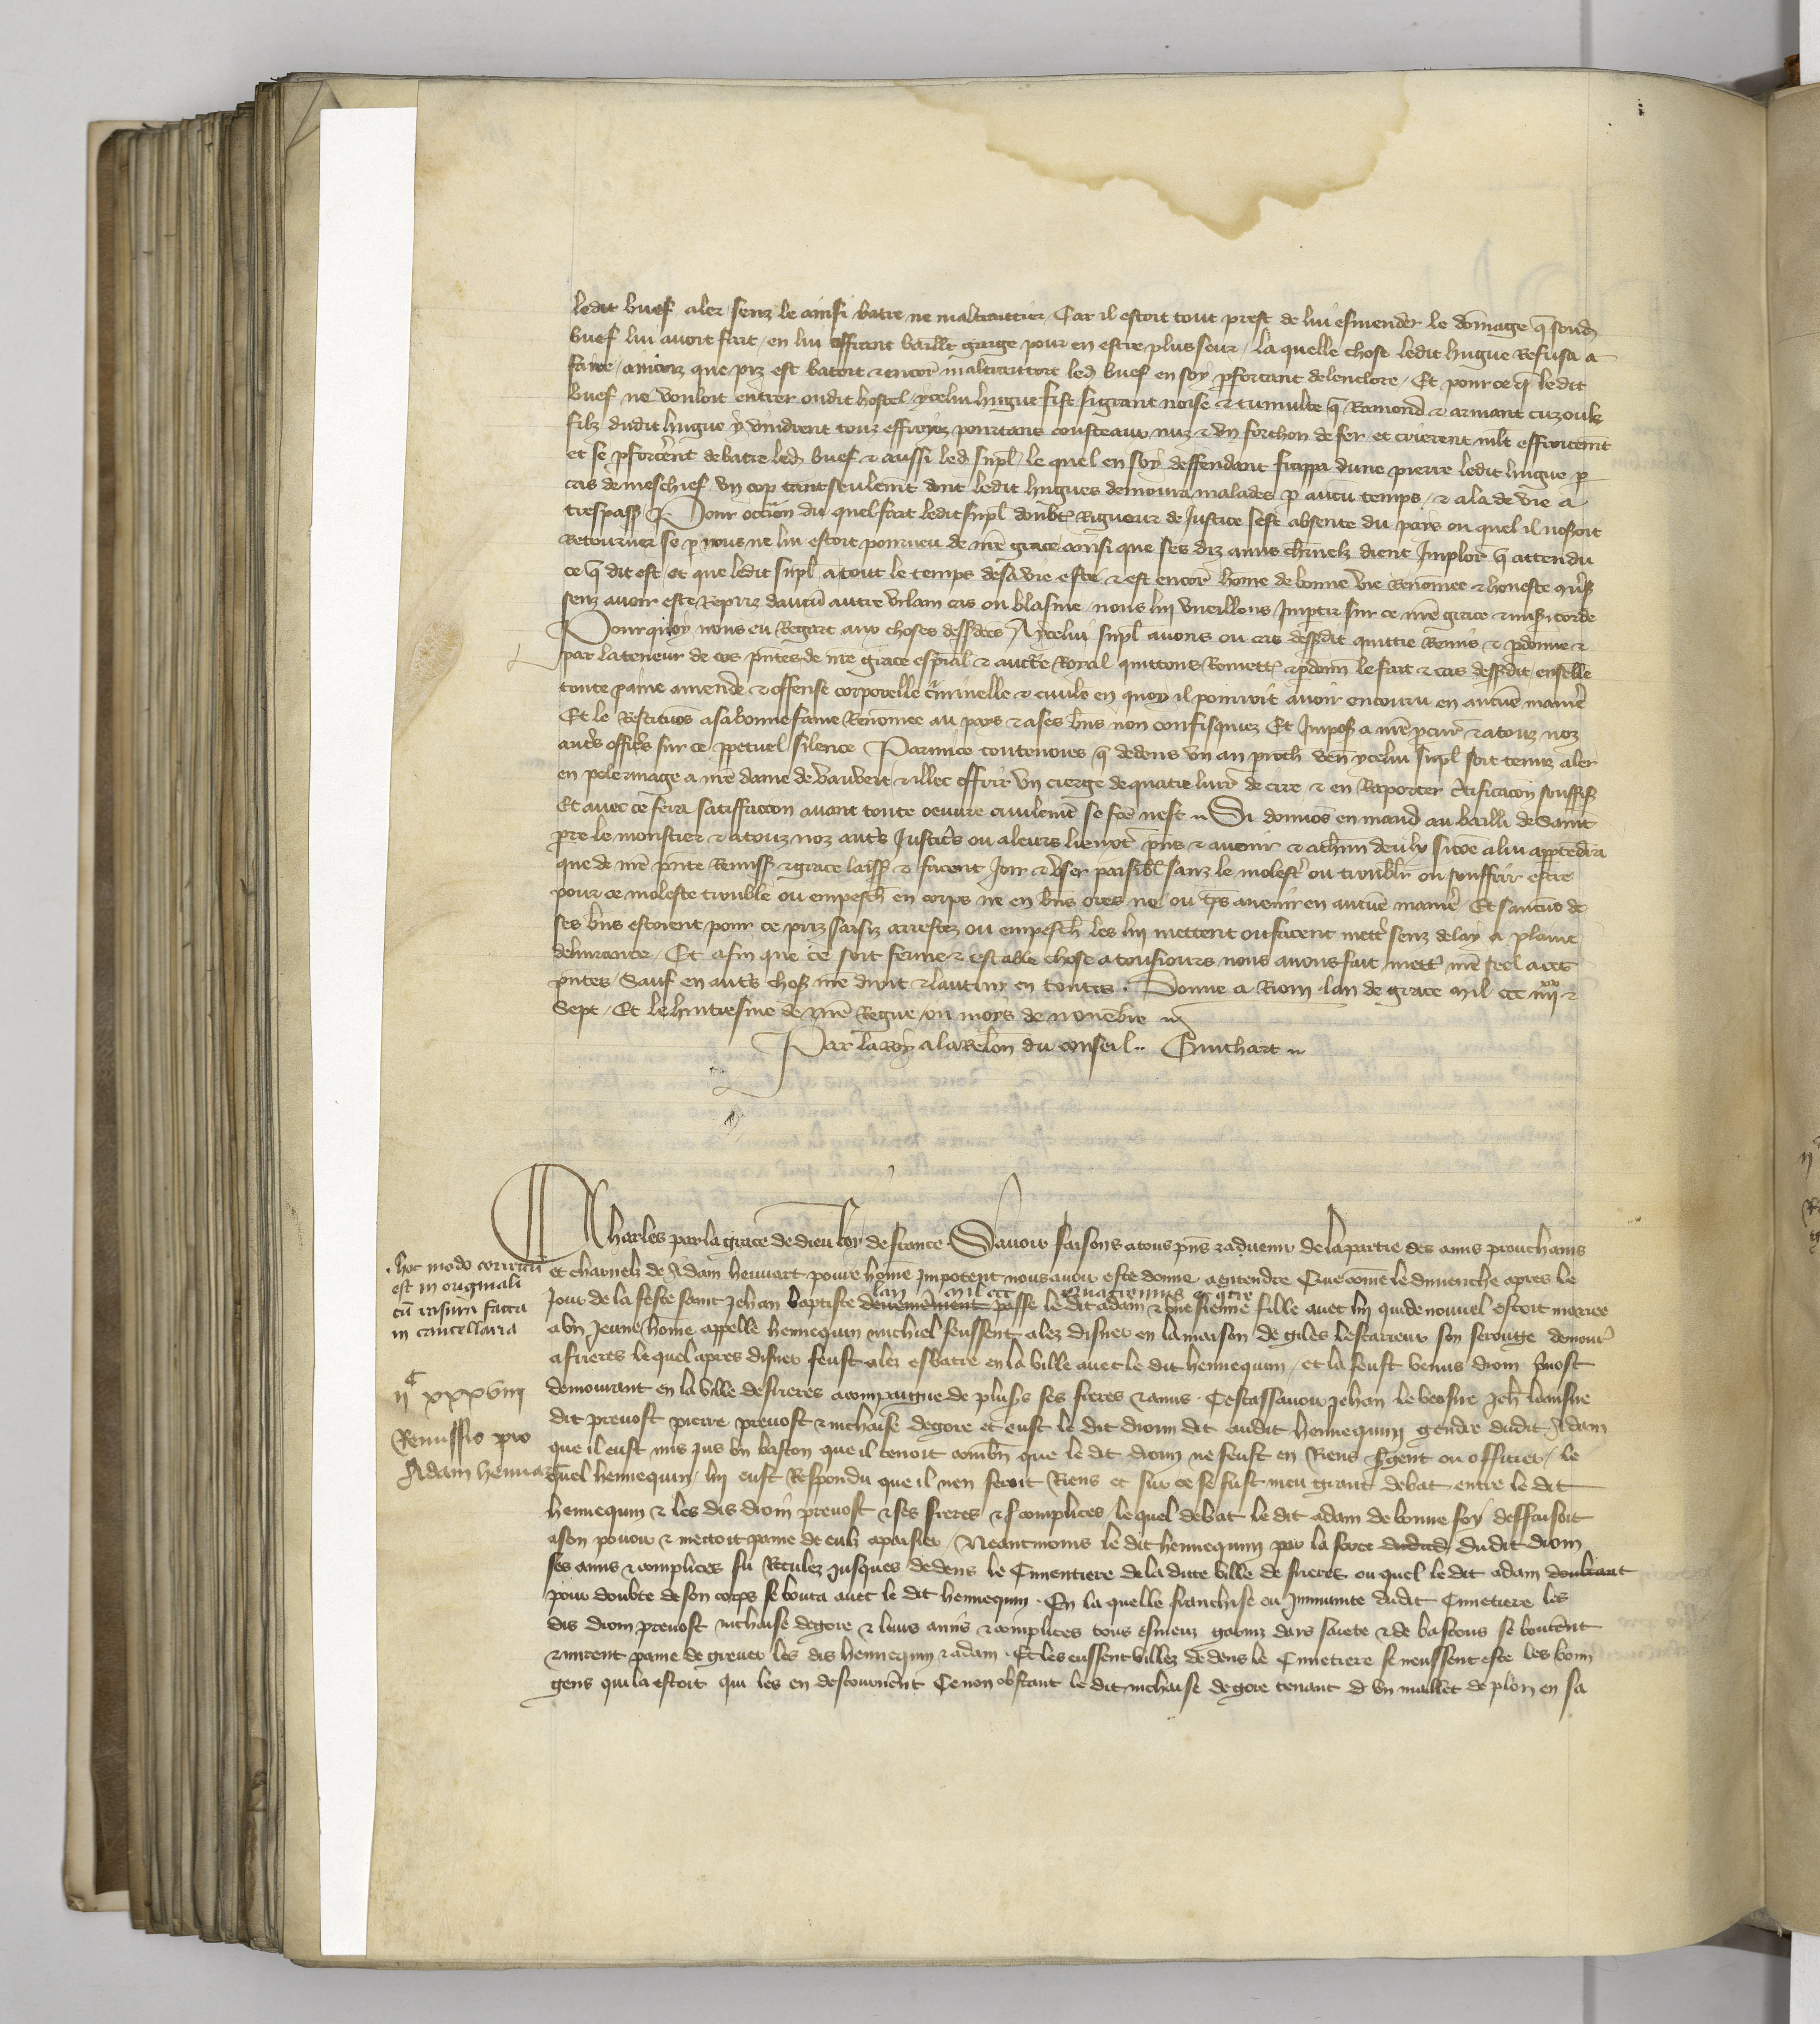 ledit buef aler senz le ainsi batre ne maltraittier Car il estoit tout prest de lui esmender le domage q̄ sond
buef lui avoit fait / en lui offrant baillr gaige pour en estre plus seur / la quelle chose ledit hugue Refusa a
faire / aincoiz que piz est batoit & encor maltraittoit led buef en soy pforcant de lenclore / Et pour ce q̄ le dit
buef ne vouloit entrer oudit hostel / ycelui hugue fist si grant noise & tumulte q̄ Romond & armant
filz dudit hugue y vindrent touz effroyez portans cousteaux nuz & vn forchon de fer et crierent mlt effroieemt
et se pforcer̄ent de batre led buef & aussi led supl / le quel en soy deffendant frappa dune pierre ledit hugue p
cas de meschief vn cop tant seulemt dont ledit hugues demoura malades p aucu temps / & ala de vie a
trespass Pour occasion du quel fait ledit supl doubt Rigueur de Justice sest absente du pais ou quel il noseroit
Retourner se p nous ne lui estoit pourveu de nre grace ainsi que ses diz amis charnelz dient Implor q̄ attendu
ce q̄ dit est et que ledit supl a tout le temps de sa vie este & est encor home de bonne vie Renomee & honeste
senz avoir este Repris daucu autre vilain cas ou blasme nous lui vueillons Impartir sur ce nre grace & misericorde
Pourquoy nous eu Regart aux choses dessdces A ycelui supl avons ou cas dessdit quittie Remis & pdonne &
par la teneur de ces pntes de nre grace espial & auctte Royal quittons Remett & pdonn le fait & cas dessdit enselle
toute paine amende & offense corporelle criminelle & civile en quoy il pourroit avoir encouru en aucune maniere
Et le Restituons a sa bonne fame Renomee au pays & a ses bns non confisquez Et Impos a nre pcur & a touz noz
autrs officrs sur ce ppetuel silence Parmi ce toutevoies q̄ dedens vn an proch ven ycelui supl soit tenuz aler
en pelerinage a nre dame de vauvert & illec offrir vn cierge de quatre livr de cire & en Raporter ctificacion souffis
Et avec ce fera satiffaccion avant toute oeuvre civilemt se fce nest Si donnos en mand au bailli de Saint
pere le monstier & a touz noz autrs Justicrs ou a leurs lieuxt pns & avenir & a chun deulx sicoe a lui apptedra
que de nre pnte Remiss & grace laiss & facent Joir & user paisibl sanz le molestr ou troublr ou souffrir estre
pour ce moleste trouble ou empesch en corps ne en bns ores ne ou tps avenir en aucune maniere Et saucuns de
ses bns estoient pour ce pris saisiz arrestez ou empesch les lui mettent ou facent mettr senz delay a plaine
delivrance / Et afin que ce soit ferme & estable chose a tousiours nous avons fait mettr nre seel a ces
pntes / Sauf en autrs chos nre droit & lautruy en toutes . Donne a Riom lan de grace mil ccc iiiixx &
Sept / Et le huitiesme de nre Regne / ou moys de novembre
Par le Roy a la relon du conseil .. Guichart
Charles par la grace de dieu Roy de france Savoir faisons a tous pns & advenir de la partie des amis prouchains
et charnelz de Adam hennart povre home Impotent nous avoir este donne a entendre Que come le dimenche apres le
lan mil ccc quatrevins & qtre
Jour de la feste saint Jehan baptiste derrenierement passe le dit adam & une sienne fille avec lui qui de nouvel estoit mariee
a un Jeune home appelle hennequin michiel feussent alez disner en la maison de giles lescarrieur son serouge demour
a frieres le quel apres disner feust alez esbatre en la ville avec le dit hennequin / et la feust venus drom prevost
demourant en la ville de frieres acompaigne de plusrs ses freres & amis . Cest assavoir Jehan le veosne Jeh lainsne
dit prevost pierre prevost & michaise degore et eust le dit drom dit audit hennequin gendre dudit Adam
que il eust mis jus un baston que il tenoit combn que le dit drom ne feust en Riens sgent ou officier / le
quel hennequin / lui eust Respondu que il nen feroit Riens et sur ce se fust meu grant debat entre le dit
hennequin & les dis drom prevost & ses freres & complices / le quel debat le dit adam de bonne foy deffaisoit
a son povoir & mettoit paine de eulx apaisier / Neantmoins le dit hennequin par la force dudit dudit drom
ses amis & complices fu Reculez jusques dedens le Cimentiere de la dicte ville de frieres ou quel le dit adam doubtant
pour doubte de son corps se bouta avec le dit hennequin . En la quelle franchise ou Immunite dudit Cimetiere les
dis drom prevost michaise degore & leurs amis & complices tous esmeuz garniz dars saiete & de bastons se boutent
& mirent paine de grever les dis hennequin & adam . Et les eussent villez dedens le Cimetiere se neussent este les bonn
gens qui la estoit qui les en destournent Ce non obstant le dit michaise degore tenant d un maillet de plon en sa
. hoc modo correctu
est in originali
cu rasura facta
in cancellaria
iic xxxviii
Remissio pro
Adam hennart